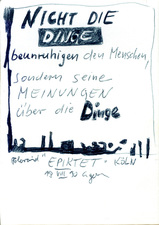 NICHT DIE
DINGE
beunruhigen den Menschen,
sondern seine
MEINUNGEN
über die Dinge
EPIKTET · KÖLN